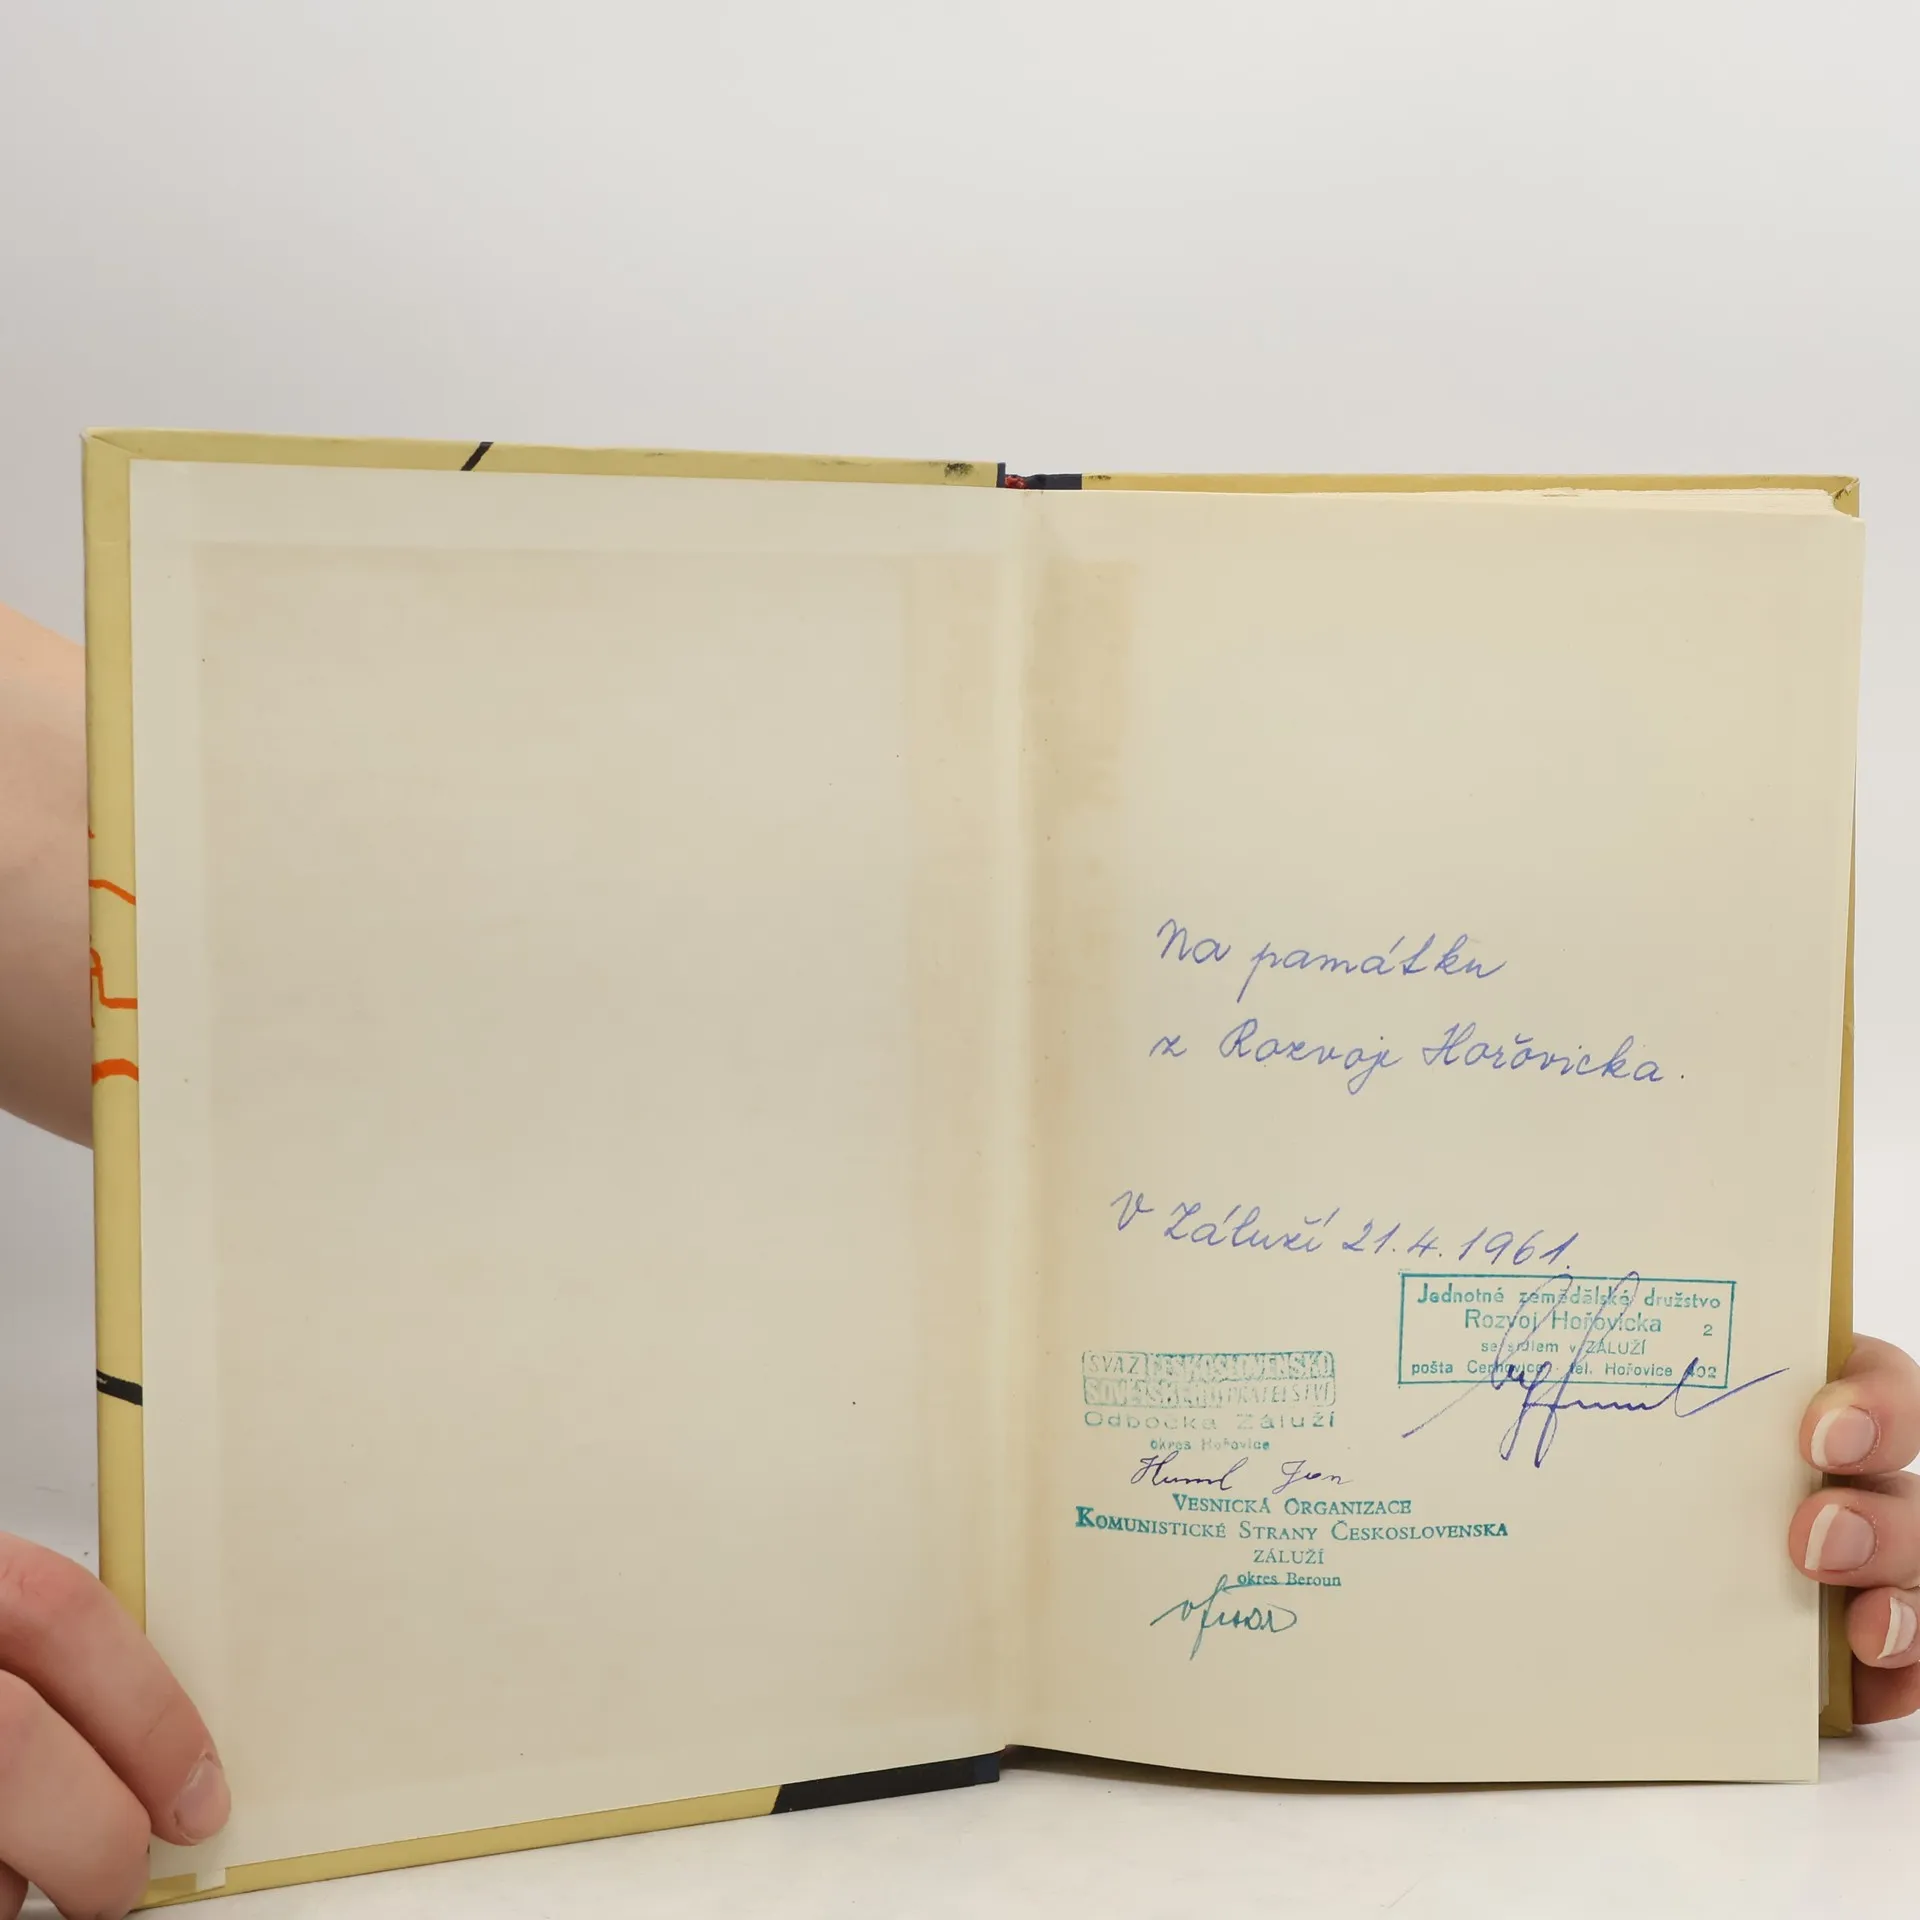 Na památku
z Rozvoje Hořovicka.
V Záluží 21.4.1961.
Jednotné zemědělské družstvo
Rozvoj Hořovicka 2
se sídlem v ZÁLUŽÍ
pošta Cerhovice tel. Hořovice 402
SVAZ ČESKOSLOVENSKO
SOVĚTSKÉHO PŘÁTELSTVÍ
Odbočka Záluží
okres Hořovice
Huml Jan
VESNICKÁ ORGANIZACE
KOMUNISTICKÉ STRANY ČESKOSLOVENSKA
ZÁLUŽÍ
okres Beroun